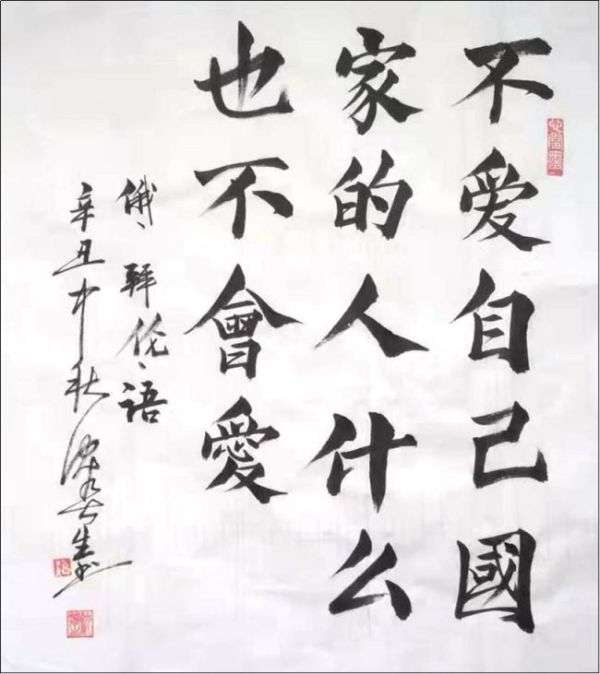 不爱自己國
家的人什么
也不會愛
俄、拜伦、语
辛丑中秋